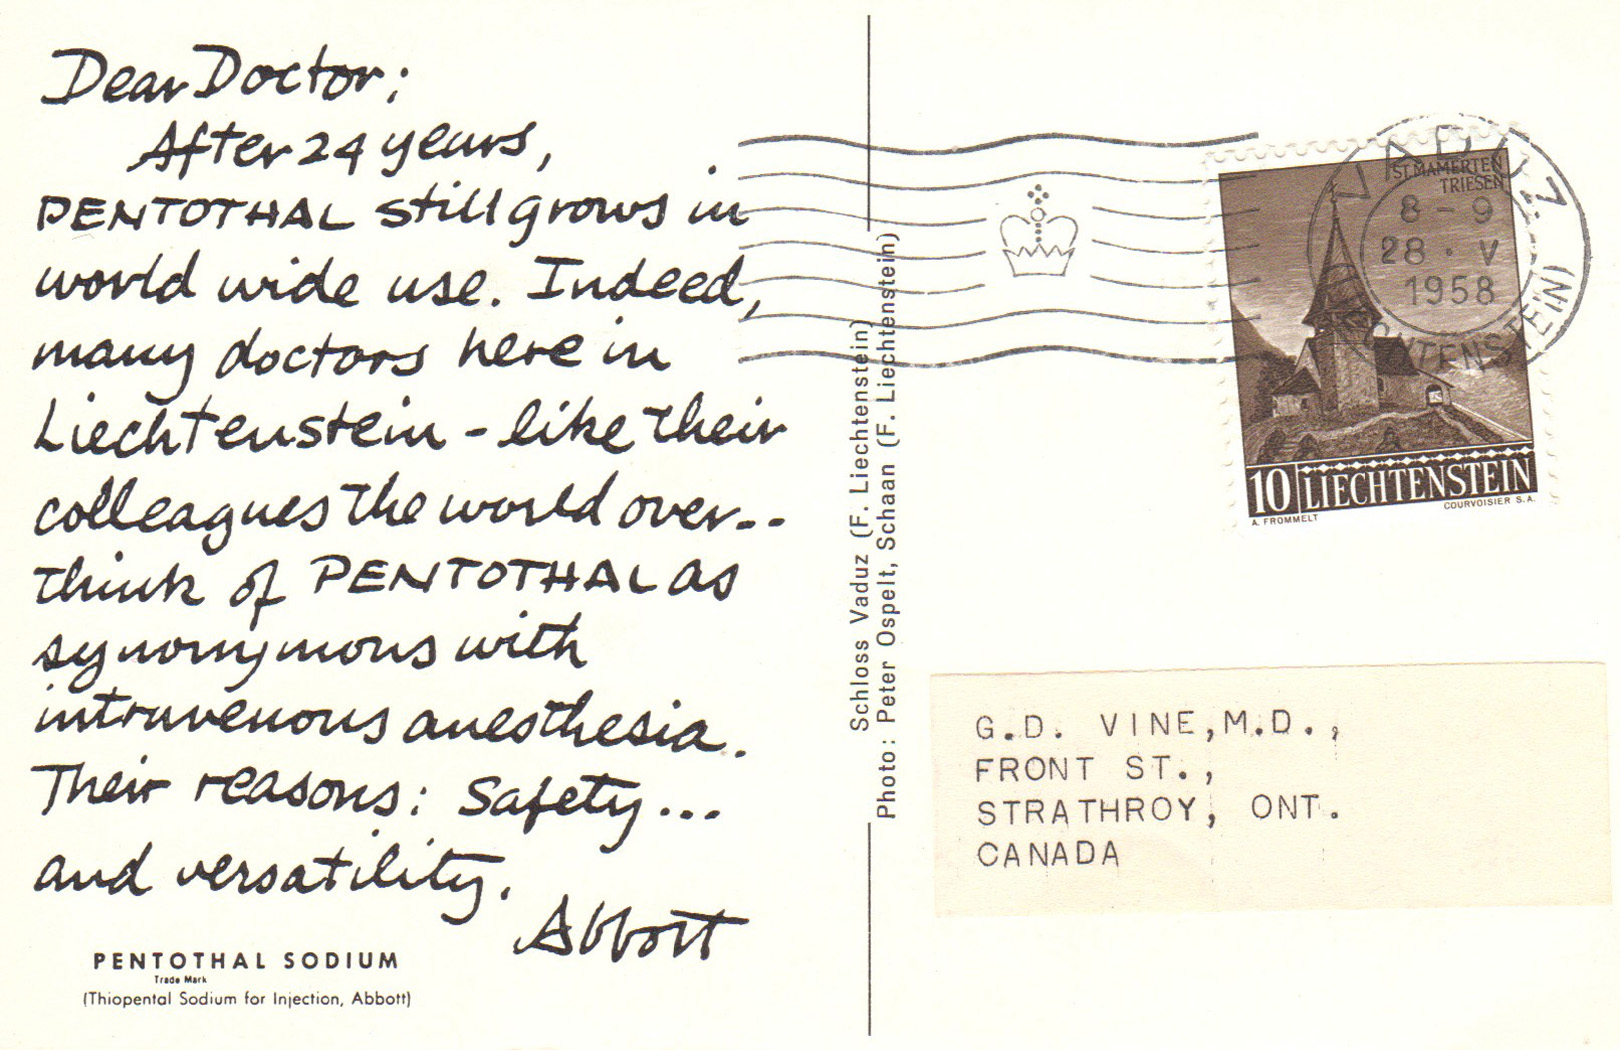 Dear Doctor;
After 24 years,
PENTOTHAL still grows in
world wide use. Indeed,
many doctors here in
Liechtenstein - like their
colleagues the world over--
think of PENTOTHAL as
synonymous with
intravenous anesthesia.
Their reasons: Safety...
and versatility.
Abbott
PENTOTHAL SODIUM
Trade Mark
(Thiopental Sodium for Injection, Abbott)
Schloss Vaduz (F. Liechtenstein)
Photo: Peter Ospelt, Schaan (F. Liechtenstein)
VADUZ
8-9
28·V
1958
(LIECHTENSTEIN)
ST. MAMERTEN
TRIESEN
10 LIECHTENSTEIN
A. FROMMELT
COURVOISIER S.A.
G.D. VINE,M.D.,
FRONT ST.,
STRATHROY, ONT.
CANADA